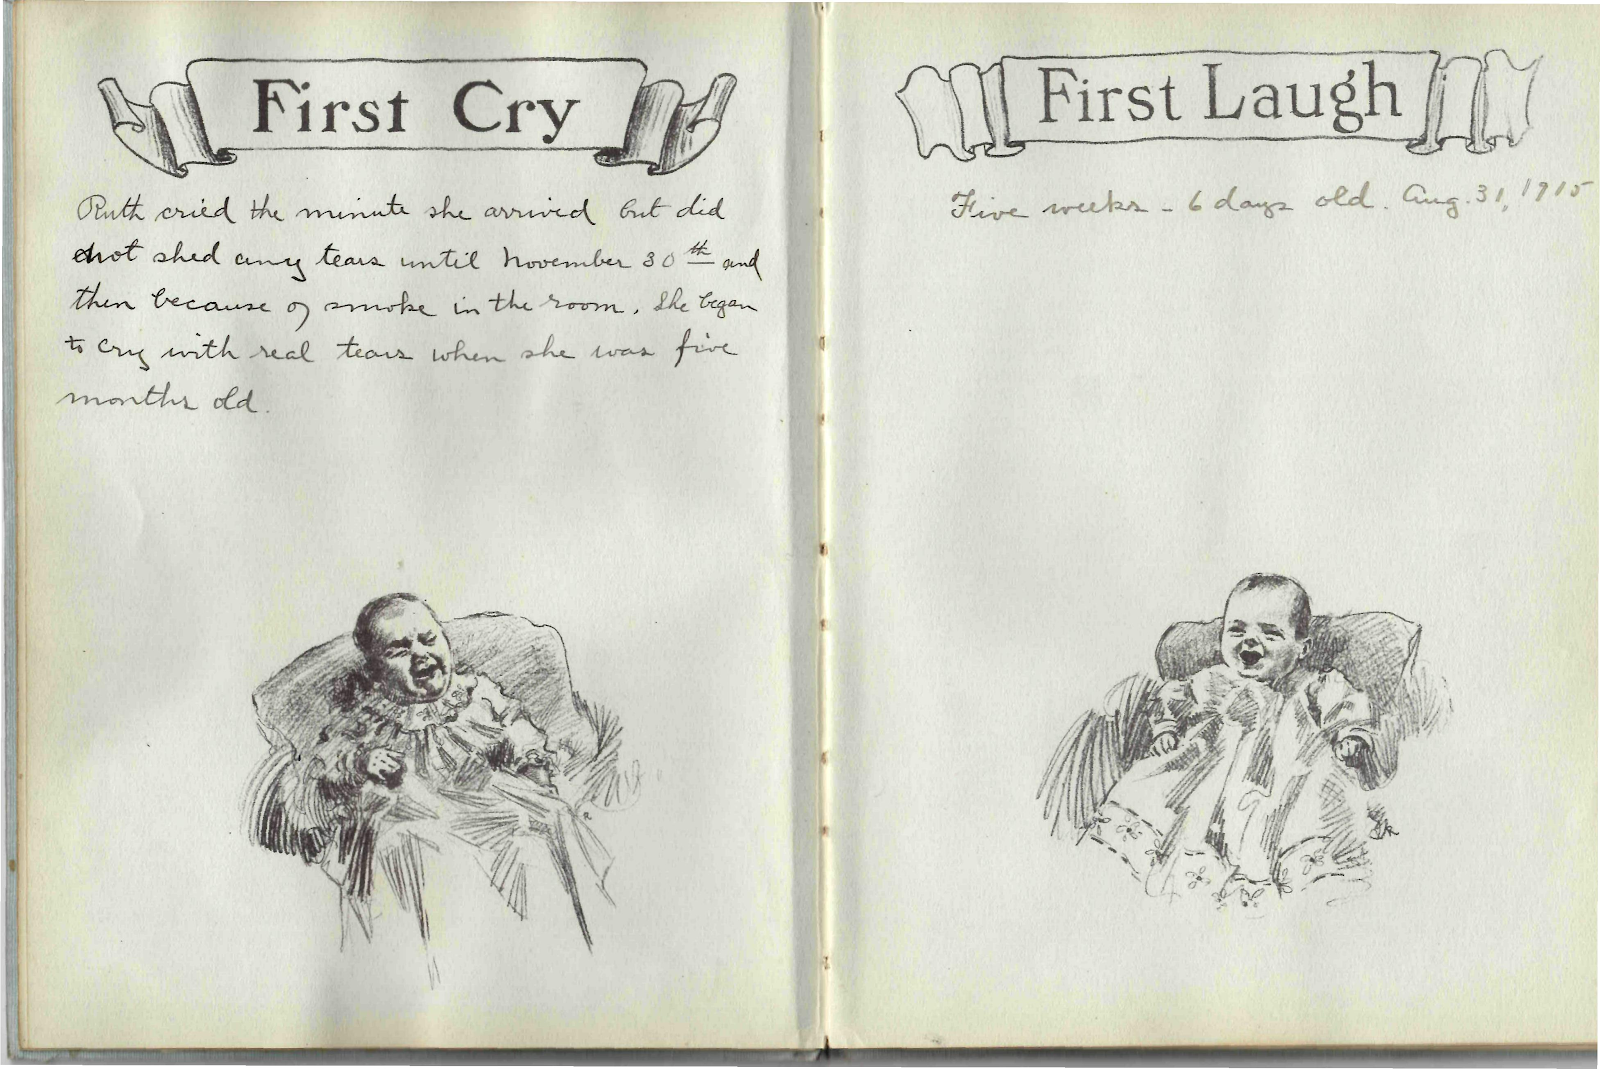 First Cry
Ruth cried the minute she arrived but did
not shed any tears until November 30th and
then because of smoke in the room. She began
to cry with real tears when she was five
months old.
First Laugh
Five weeks - 6 days old. Aug. 31, 1915